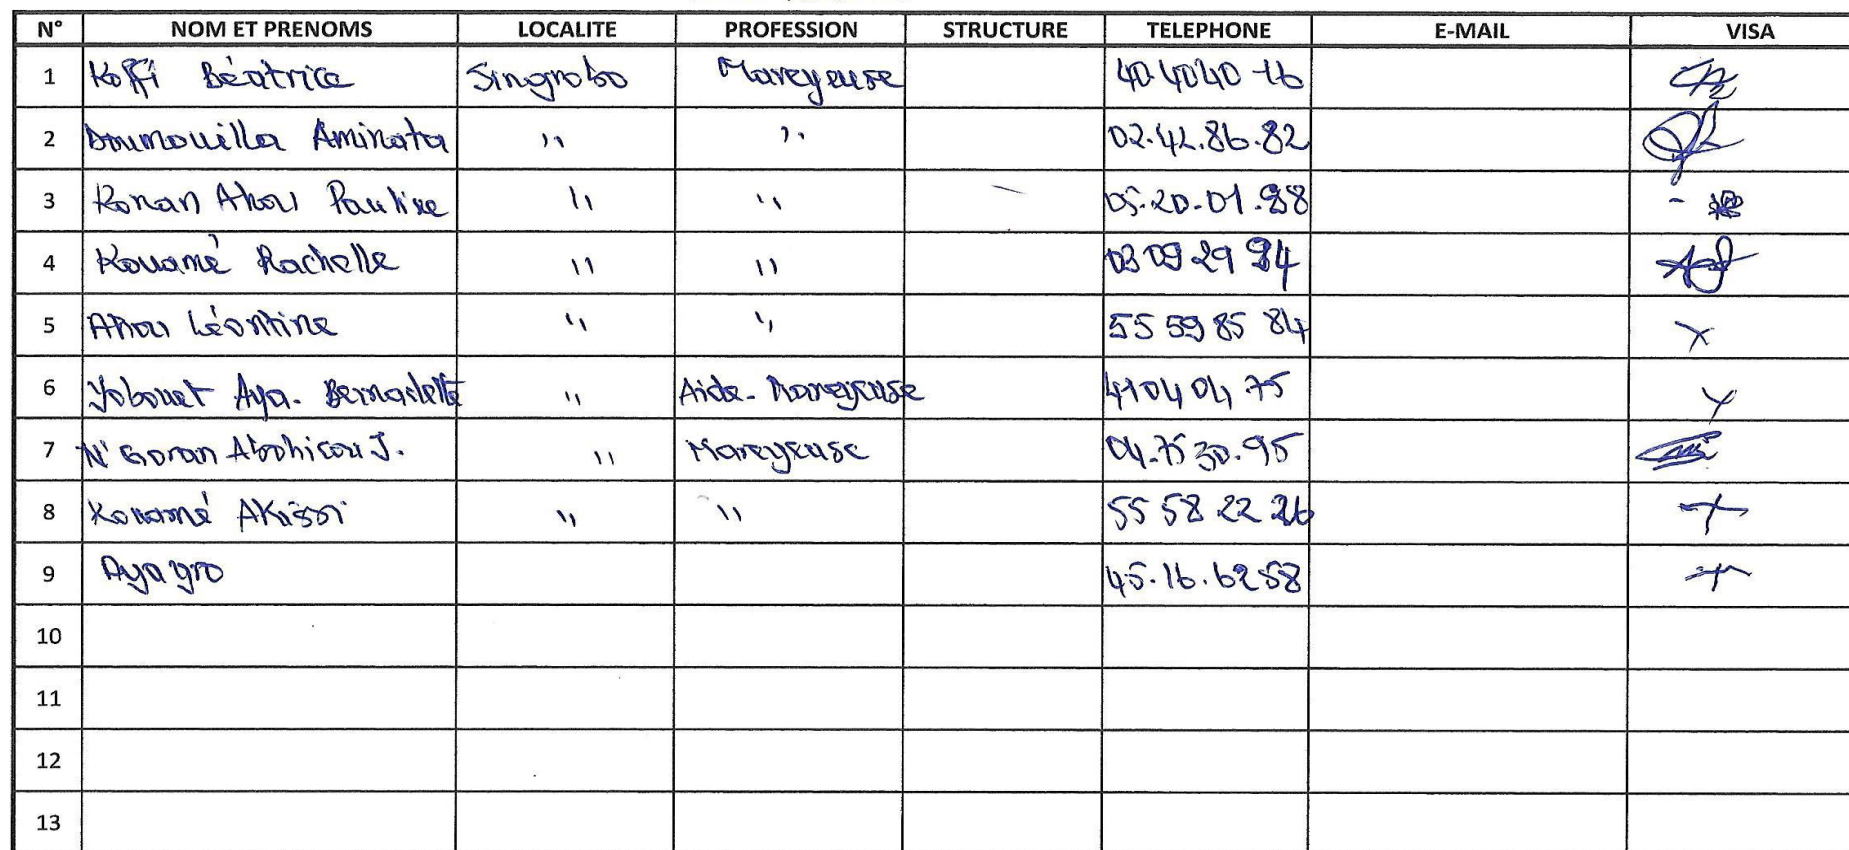 N° NOM ET PRENOMS LOCALITE PROFESSION STRUCTURE TELEPHONE E-MAIL VISA
1 Koffi Béatrice Singrobo Mareyeuse 40 40 40 16
2 Doumouilla Aminata " " 02.42.86.82
3 Konan Ahou Pauline " " 05.20.01.88
4 Kouamé Rachelle " " 03 09 29 94
5 Ahou Léontine " " 55 59 85 84
6 Yobouet Aya. Bernadette " Aide-Mareyeuse 41 04 04 75
7 N'Goran J. " Mareyeuse 04.75 30.95
8 Kouamé AKissi " " 55 58 22 26
9 Aya yro 45.16.62 58
10
11
12
13